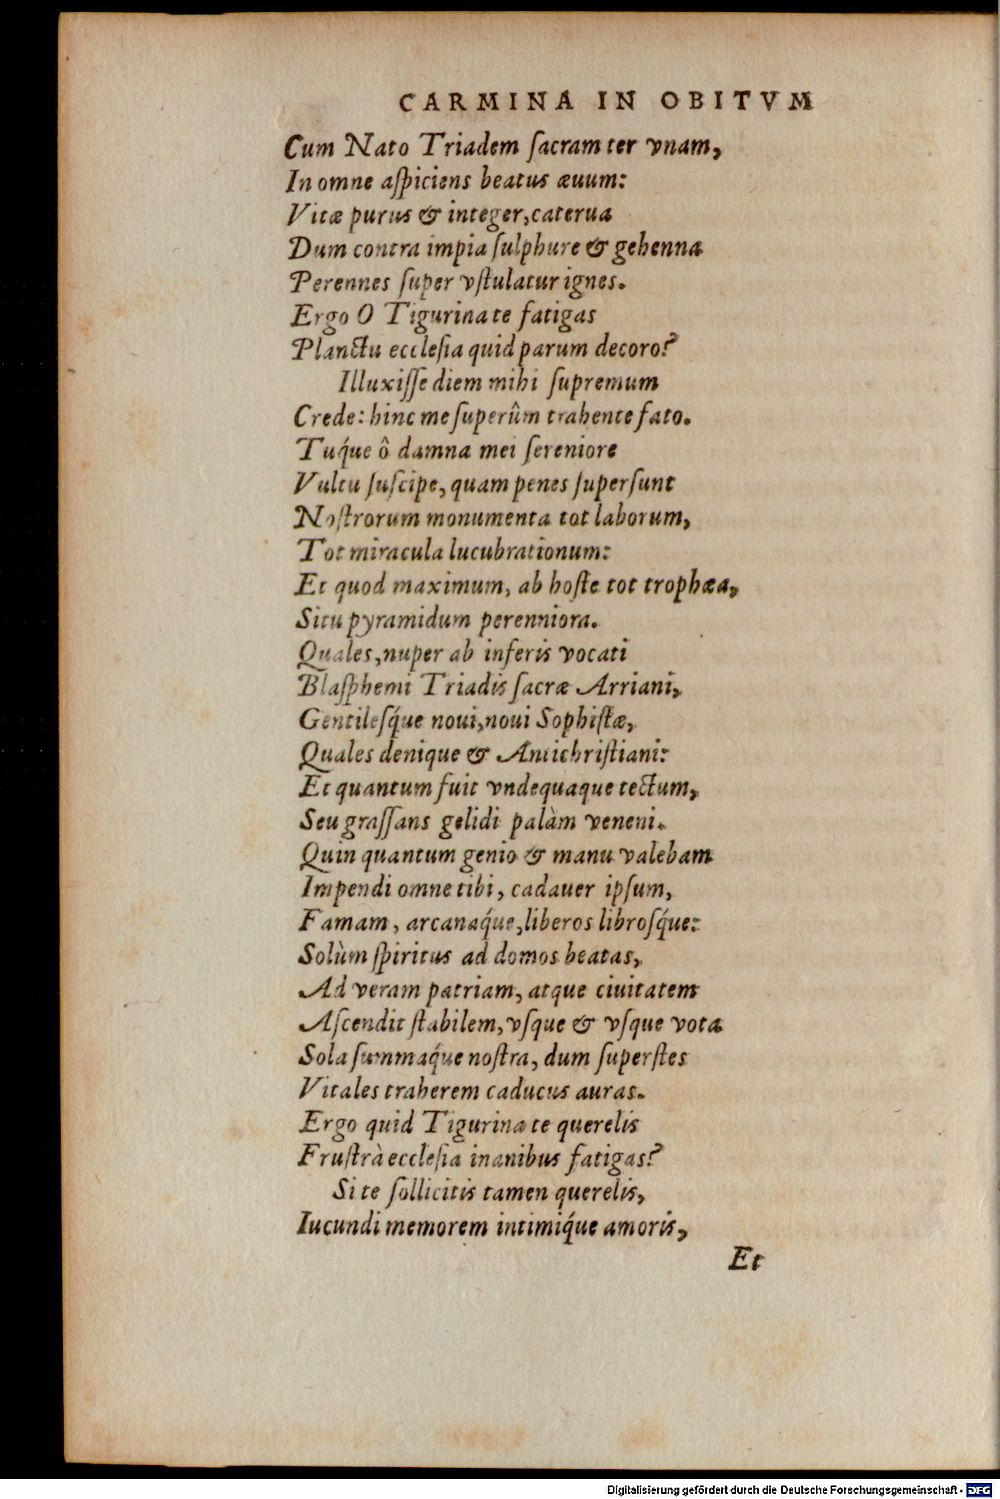 CARMINA IN OBITVM
Cum Nato Triadem ſacram ter vnam,
In omne aſpiciens beatus æuum:
Vitæ purus & integer, caterua
Dum contra impia ſulphure & gehenna
Perennes ſuper vſtulatur ignes.
Ergo O Tigurina te fatigas
Planctu eccleſia quid parum decoro?
Illuxiſſe diem mihi ſupremum
Crede: hinc me ſuperûm trahente fato.
Tuq́ue ô damna mei ſereniore
Vultu ſuſcipe, quam penes ſuperſunt
Noſtrorum monumenta tot laborum,
Tot miracula lucubrationum:
Et quod maximum, ab hoſte tot trophæa,
Situ pyramidum perenniora.
Quales, nuper ab inferis vocati
Blaſphemi Triadis ſacræ Arriani,
Gentileſq́ue noui, noui Sophiſtæ,
Quales denique & Antichriſtiani:
Et quantum fuit vndequaque tectum,
Seu graſſans gelidi palàm veneni.
Quin quantum genio & manu valebam
Impendi omne tibi, cadauer ipſum,
Famam, arcanaq́ue, liberos libroſq́ue:
Solùm ſpiritus ad domos beatas,
Ad veram patriam, atque ciuitatem
Aſcendit ſtabilem, vſque & vſque vota
Sola ſummaq́ue noſtra, dum ſuperſtes
Vitales traherem caducus auras.
Ergo quid Tigurina te querelis
Fruſtrà eccleſia inanibus fatigas?
Si te ſollicitis tamen querelis,
Iucundi memorem intimiq́ue amoris,
Et
Digitalisierung gefördert durch die Deutsche Forschungsgemeinschaft - DFG